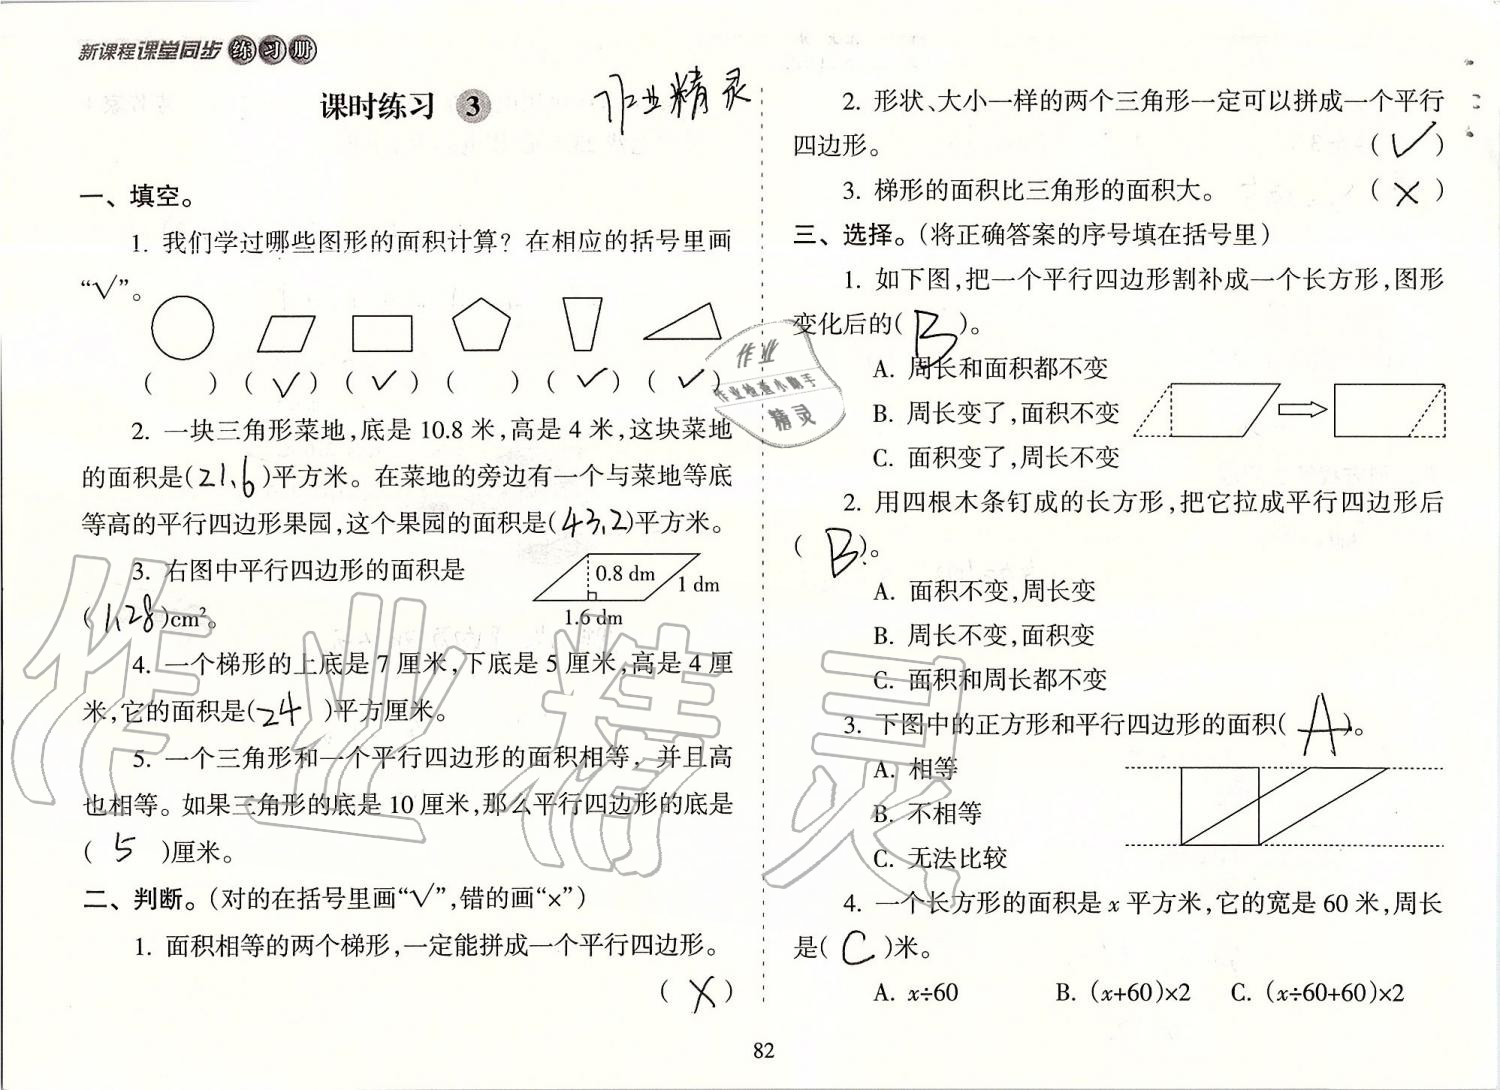 新课程课堂同步练习册
课时练习 3
作业精灵
一、填空。
1. 我们学过哪些图形的面积计算？在相应的括号里画
“√”。
(  ) ( √ ) ( √ ) (  ) ( √ ) ( √ )
2. 一块三角形菜地,底是 10.8 米,高是 4 米,这块菜地
的面积是( 21.6 )平方米。在菜地的旁边有一个与菜地等底
等高的平行四边形果园,这个果园的面积是( 43.2 )平方米。
3. 右图中平行四边形的面积是
( 1.28 )cm²。
0.8 dm
1 dm
1.6 dm
4. 一个梯形的上底是 7 厘米,下底是 5 厘米,高是 4 厘
米,它的面积是( 24 )平方厘米。
5. 一个三角形和一个平行四边形的面积相等，并且高
也相等。如果三角形的底是 10 厘米,那么平行四边形的底是
( 5 )厘米。
二、判断。（对的在括号里画“√”,错的画“×”）
1. 面积相等的两个梯形,一定能拼成一个平行四边形。
( × )
2. 形状、大小一样的两个三角形一定可以拼成一个平行
四边形。 ( √ )
3. 梯形的面积比三角形的面积大。 ( × )
三、选择。（将正确答案的序号填在括号里）
1. 如下图,把一个平行四边形割补成一个长方形,图形
变化后的( B )。
A. 周长和面积都不变
B. 周长变了,面积不变
C. 面积变了,周长不变
2. 用四根木条钉成的长方形,把它拉成平行四边形后
( B )。
A. 面积不变,周长变
B. 周长不变,面积变
C. 面积和周长都不变
3. 下图中的正方形和平行四边形的面积( A )。
A. 相等
B. 不相等
C. 无法比较
4. 一个长方形的面积是 x 平方米,它的宽是 60 米,周长
是( C )米。
A. x÷60 B. (x+60)×2 C. (x÷60+60)×2
作业
作业检查小助手
精灵
作业精灵
82